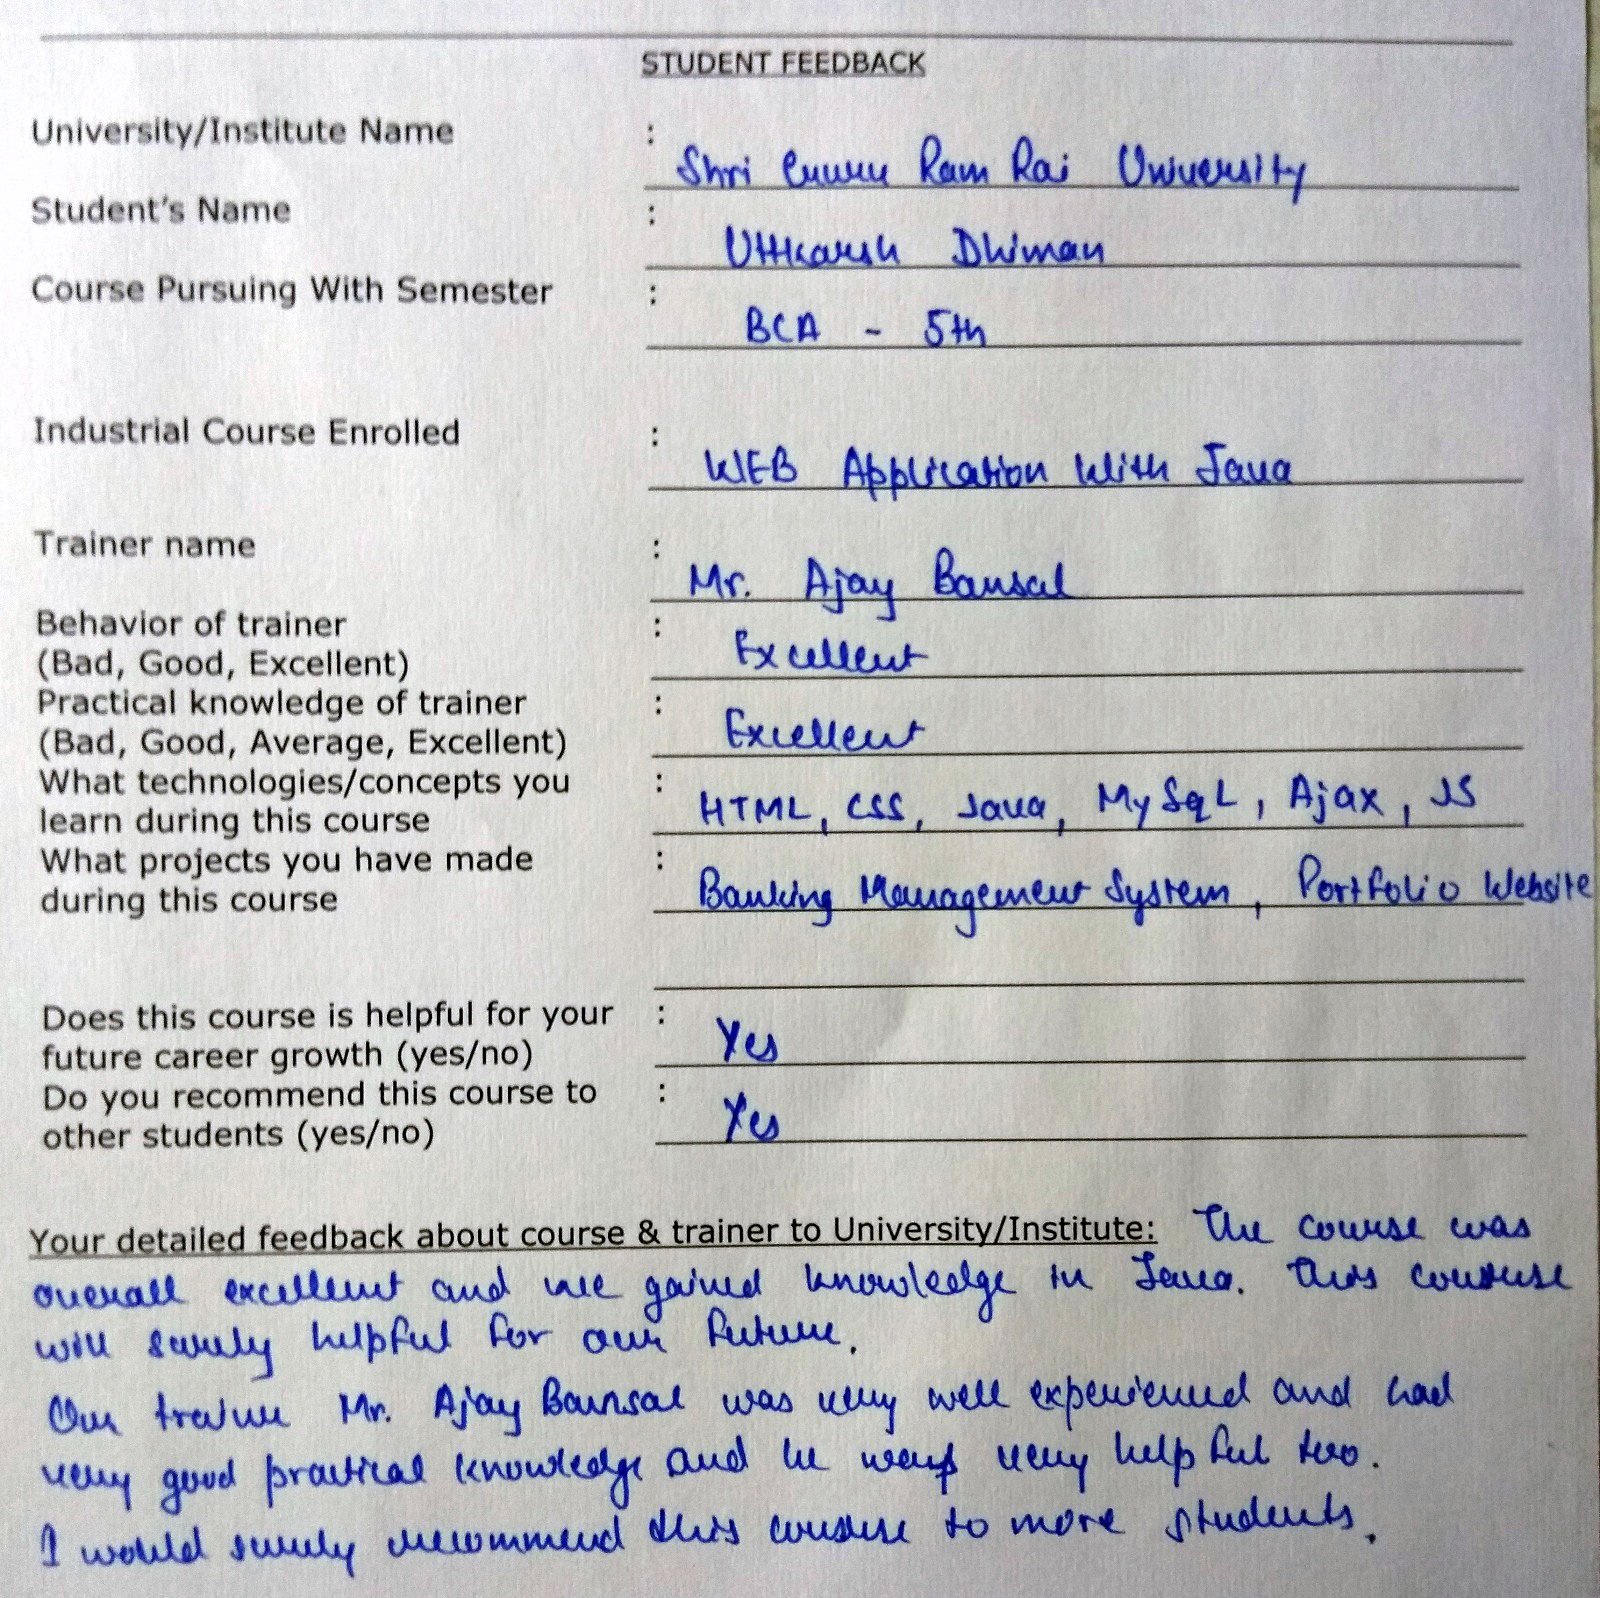 STUDENT FEEDBACK
University/Institute Name : Shri Guru Ram Rai University
Student's Name : Uttkarsh Dhiman
Course Pursuing With Semester : BCA - 5th
Industrial Course Enrolled : WEB Application With Java
Trainer name : Mr. Ajay Bansal
Behavior of trainer :
(Bad, Good, Excellent) Excellent
Practical knowledge of trainer :
(Bad, Good, Average, Excellent) Excellent
What technologies/concepts you :
learn during this course HTML, CSS, Java, MySqL, Ajax, JS
What projects you have made :
during this course Banking Management System, Portfolio Website
Does this course is helpful for your :
future career growth (yes/no) Yes
Do you recommend this course to :
other students (yes/no) Yes
Your detailed feedback about course & trainer to University/Institute: The course was
overall excellent and we gained knowledge in Java. This course
will surely helpful for our future.
Our trainer Mr. Ajay Bansal was very well experienced and had
very good practical knowledge and he was very helpful too.
I would surely recommend this course to more students.